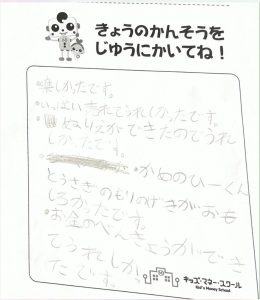 きょうのかんそうを
じゆうにかいてね!
・楽しかたです。
・いっぱい売れてうれしかったです。
・ぬりえができたのでうれ
しかたです。
・かめのひーくん
とうさきのもりのげきがおも
しろかたです。
・お金のべんきょうができ
てうれしかっ
たです。
キッズ・マネー・スクール
Kid's Money School